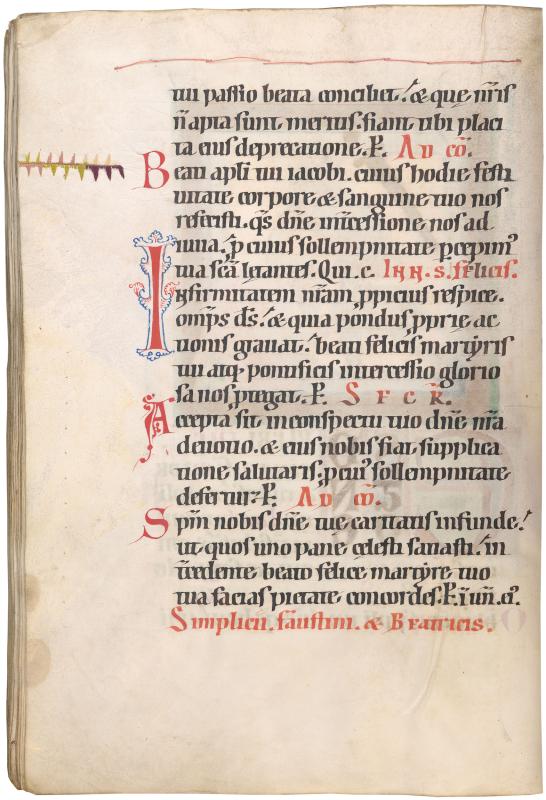 tui passio beata conciliet. & que nr̄is
n̄ apta sunt meritis. fiant tibi placi
ta eius deprecatione. P. AD CO̅.
Beati apl̄i tui iacobi. cuius hodie festi
uitate corpore & sanguine tuo nos
refecisti. q̄s dn̄e int̄cessione nos ad
iuua. ꝓ cuius sollempnitate ꝑcepim᷒
tua sc̄a letantes. Qui. c. IN N. S. felicis.
Infirmitatem nr̄am ꝓpicius respice.
omp̄s ds̄. & quia pondus ꝓprie ac
tionis grauat. beati felicis martyris
tui atq; pontificis intercessio glorio
sa nos ꝓtegat. P. SECR̄.
Accepta sit in conspectu tuo dn̄e nr̄a
deuotio. & eius nobis fiat supplica
tione salutaris, ꝓ cui᷒ sollempnitate
defertur. P. AD CO̅.
Spm̄ nobis dn̄e tue caritatis infunde.
ut quos uno pane celesti satiasti. in
t̄cedente beato felice martyre tuo
tua facias pietate concordes. P. ī un̄. ei᷒.
Simplicii. faustini. & Beatricis.